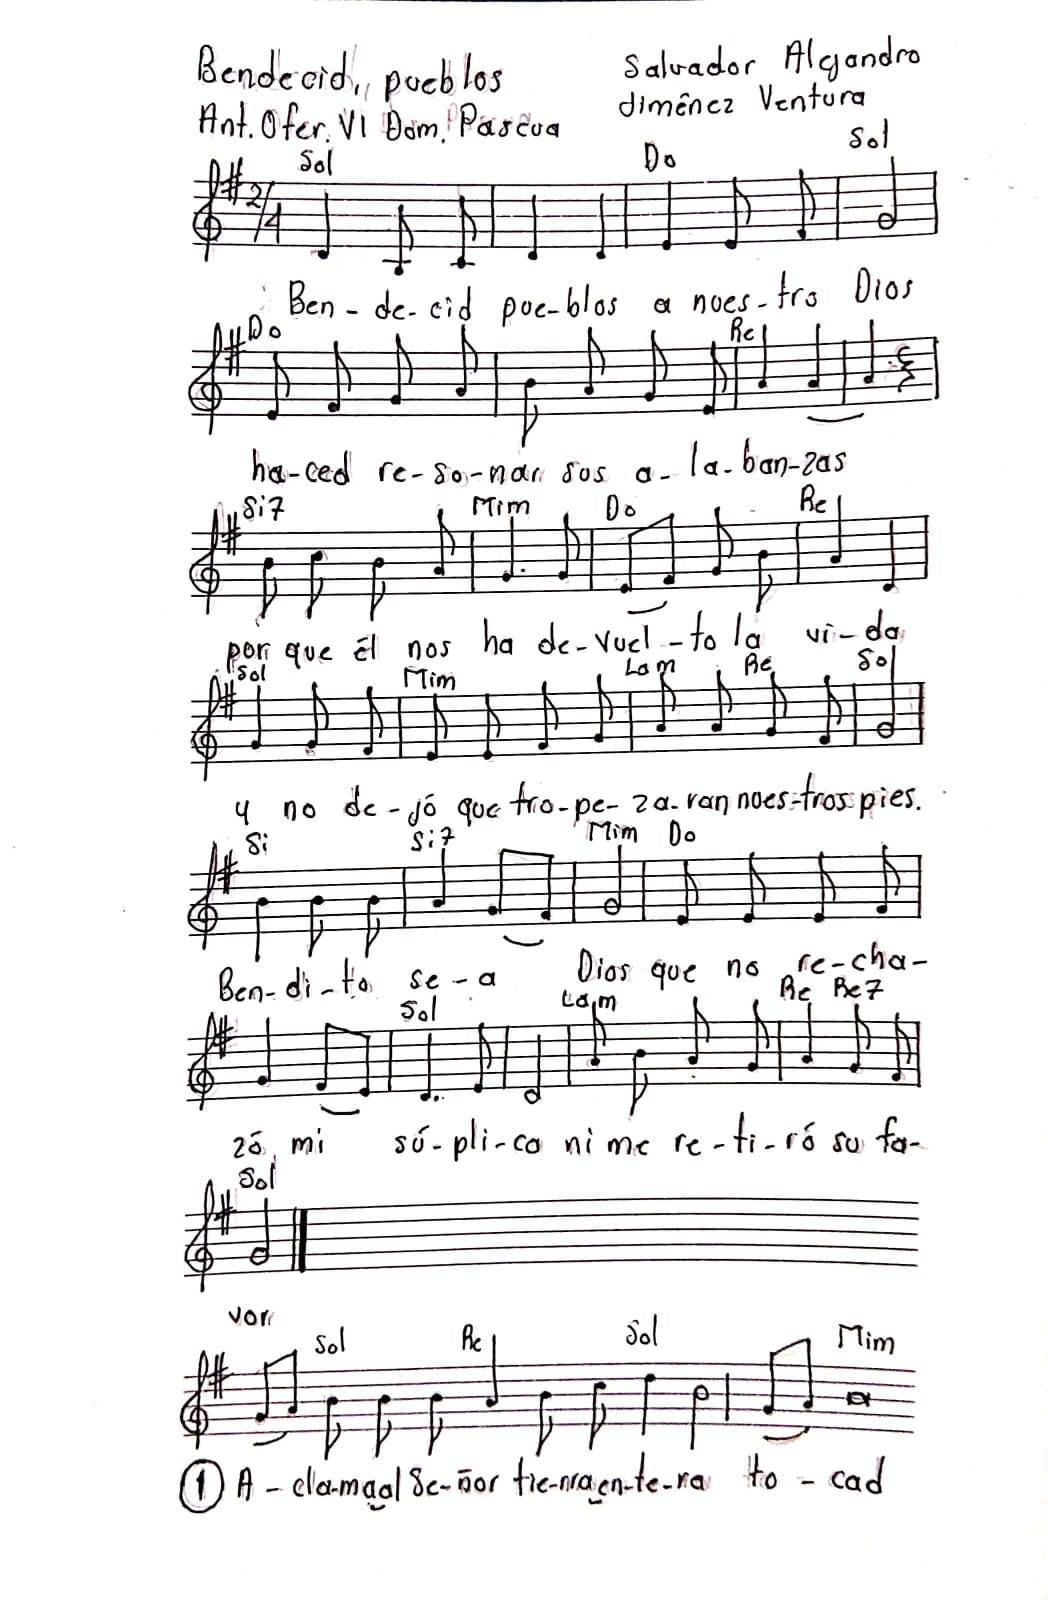 Bendecid, pueblos
Salvador Alejandro
Ant. Ofer. VI Dom. Pascua
Jiménez Ventura
Sol Do Sol
2/4
Ben - de - cid pue-blos a nues-tro Dios
Do Re
ha-ced re-so-nar sus a-la-ban-zas
Si7 Mim Do Re
por que él nos ha de-vuel-to la vi-da
Sol Mim Lam Re Sol
y no de-jó que tro-pe-za-ran nues-tros pies.
Si Si7 Mim Do
Ben-di-to se-a Dios que no re-cha-
Sol Lam Re Re7
zó mi sú-pli-ca ni me re-ti-ró su fa-
Sol
vor
Sol Re Sol Mim
1 A - cla-ma al Se-ñor tie-rra en-te-ra to - cad